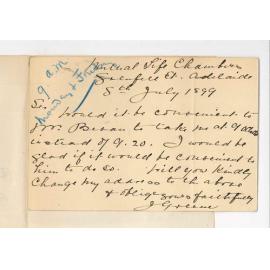 Mutual Life Chambers
Grenfell St. Adelaide
8th July 1899
9 a.m
Monday & Friday
Sir
Would it be convenient to
Mr to take me at 9 o'clock
instead of 9.20. I would be
glad if it would be convenient to
him to do so. Will you kindly
change my address to the above
& oblige yours faithfully
J Greene